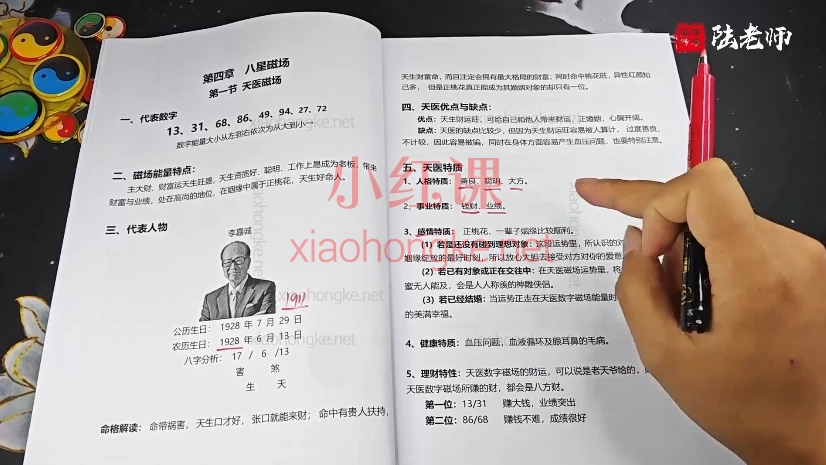 陆老师
第四章 八星磁场
第一节 天医磁场
一、代表数字
13、31、68、86、49、94、27、72
数字能量大小从左到右依次为从大到小
二、磁场能量特点：
主大财、财富运天生旺盛，天生资质好、聪明，工作上易成为老板，带来
财富与业绩，处在高尚的地位，在姻缘中属于正桃花，天生好命人。
三、代表人物
李嘉诚
1911
公历生日：1928 年 7 月 29 日
农历生日：1928 年 6 月 13 日
八字分析：17 / 6 /13
害 煞
生 天
命格解读：命带祸害，天生口才好，张口就能来财；命中有贵人扶持，
天生财富命，而且注定会拥有最大格局的财富；同时命中桃花旺，异性红颜知
己多，但是正桃花真正能成为其婚姻对象的却只有一位。
四、天医优点与缺点：
优点：天生财运旺，可给自己和他人带来财运，正婚姻，心胸开阔。
缺点：天医的缺点比较少，但因为天生财运旺容易被人算计，过度善良，
不计较，因此容易被骗，同时在身体方面容易产生血压问题，也要特别注意。
五、天医特质
1、人格特质：善良、聪明、大方。
2、事业特质：钱财、业绩。
3、感情特质：正桃花，一辈子姻缘比较顺利。
(1) 若是还没有碰到理想对象：这段运势里，所认识的对
姻缘绽放的最好时刻，所以放心大胆去接受对方对你的爱意
(2) 若已有对象或正在交往中：在天医磁场运势里，将
蜜无人能及，会是人人称羡的神雕侠侣。
(3) 若已经结婚：当运势正走在天医数字磁场能量时
的美满幸福。
4、健康特质：血压问题，血液循环及眼耳鼻的毛病。
5、理财特性：天医数字磁场的财运，可以说是老天爷给的，
天医数字磁场所赚的财，都会是八方财。
第一位：13/31 赚大钱，业绩突出
第二位：86/68 赚钱不难，成绩很好
小红课
xiaohongke.net